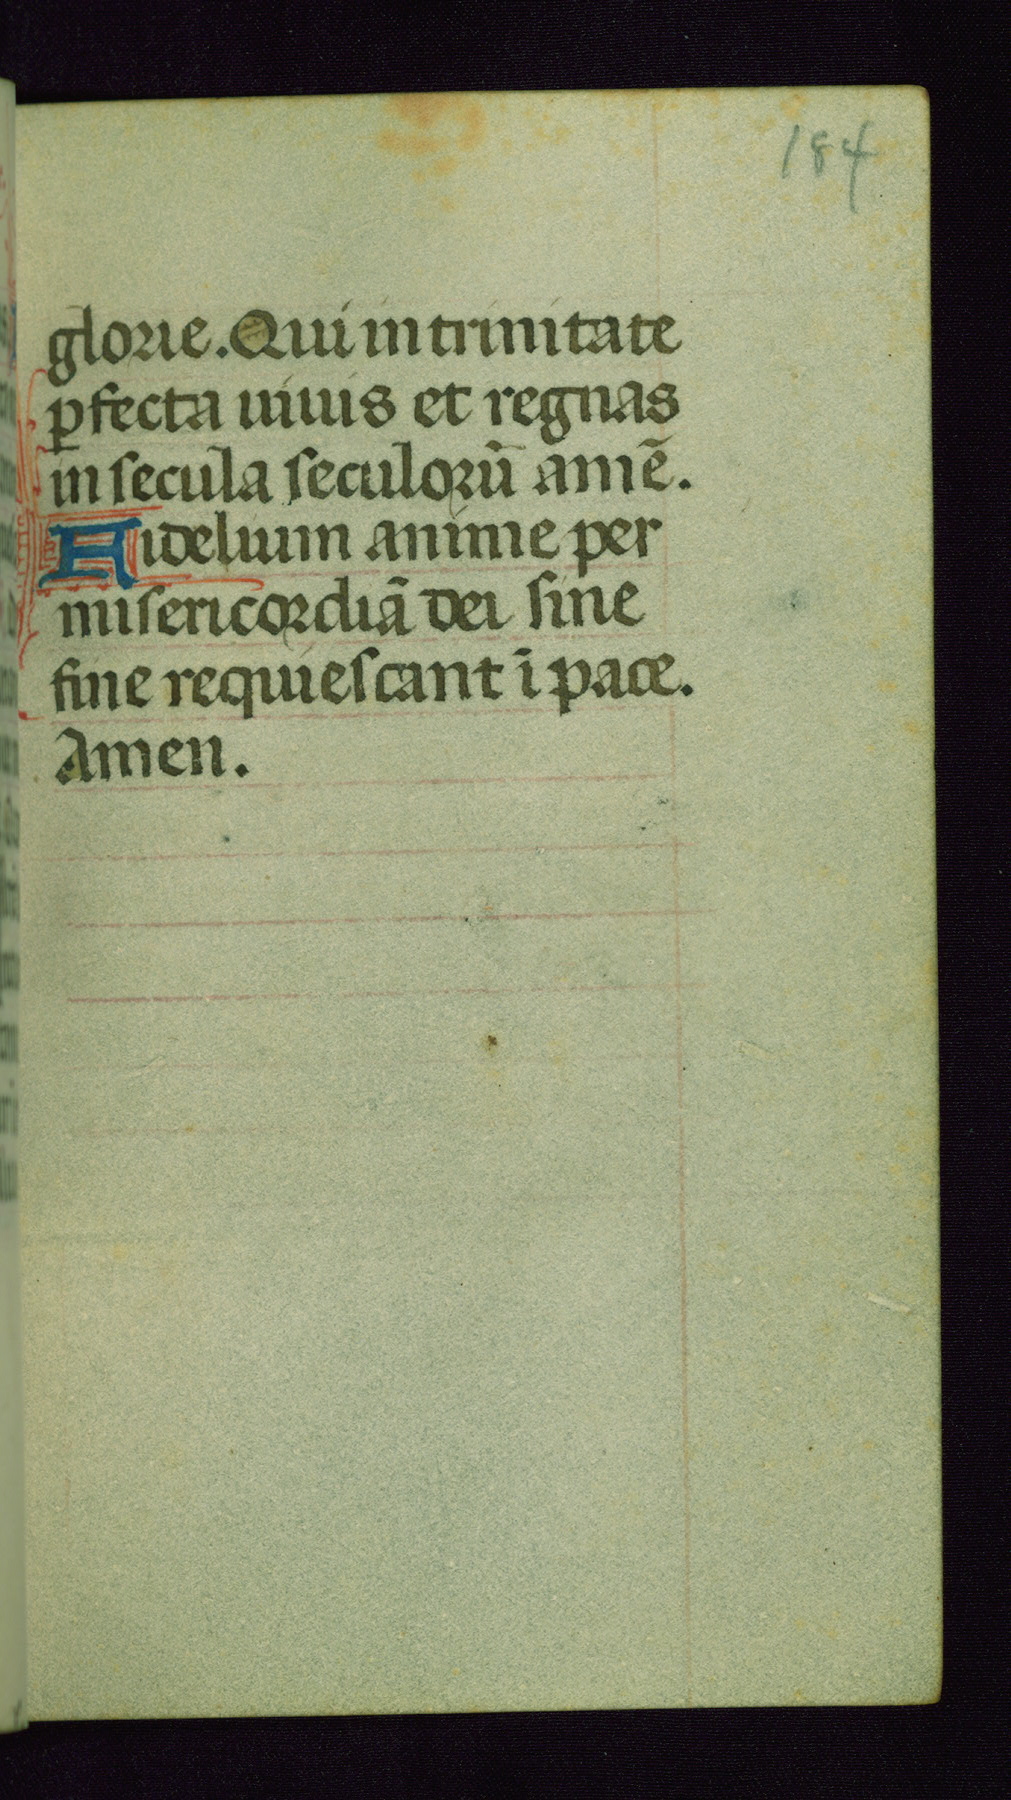 184
glorie. Qui in trinitate
ꝑfecta uiuis et regnas
in secula seculorū amē.
Fidelium anime per
misericordiā dei sine
fine requiescant ī pace.
Amen.